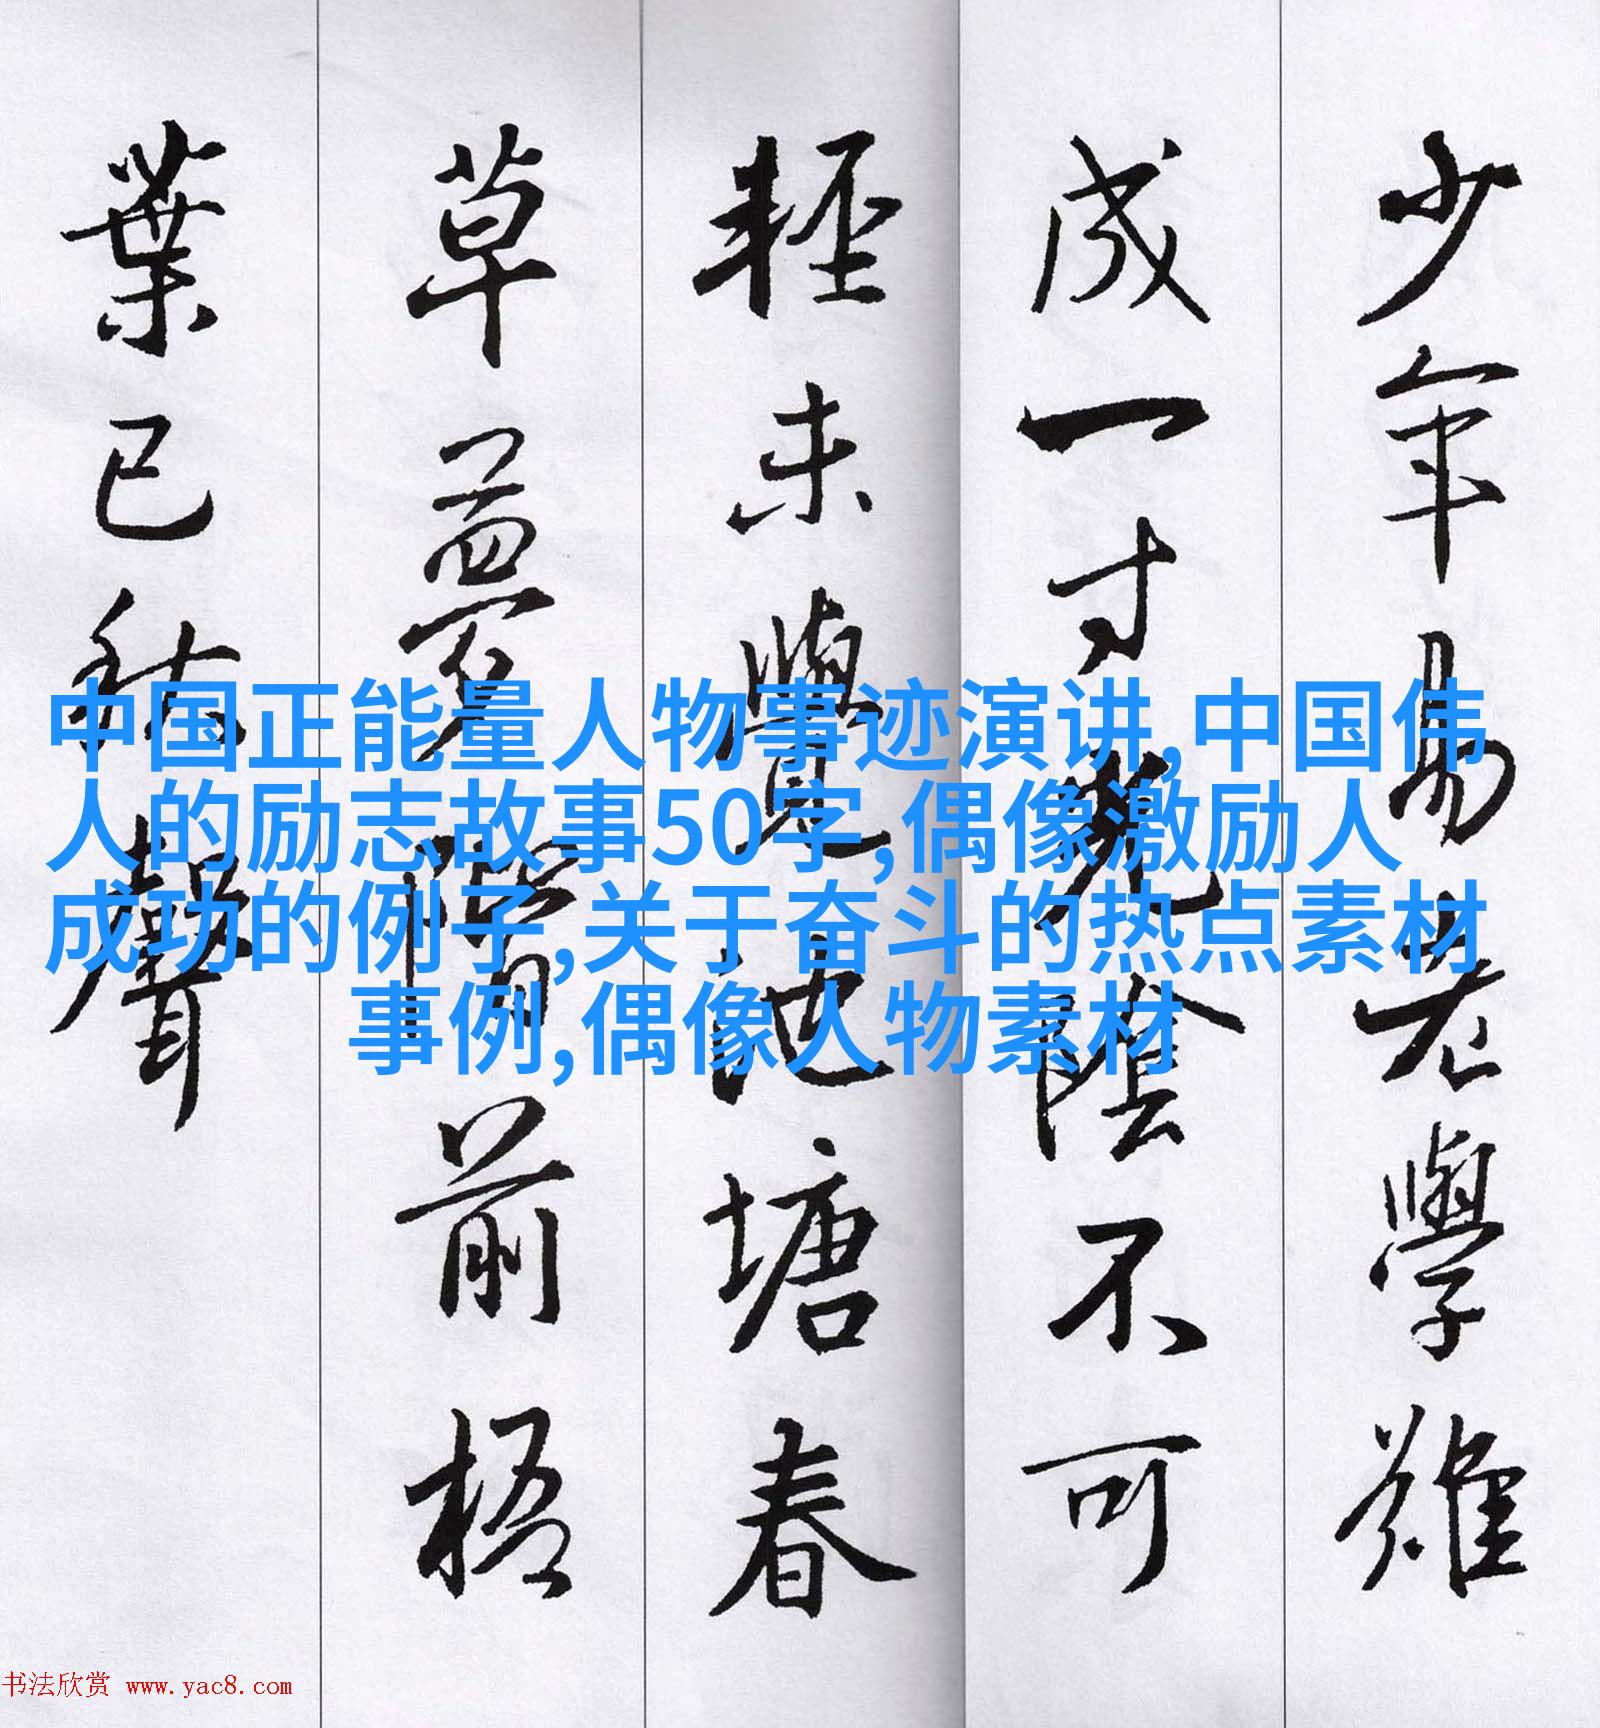 少年易老學難
成一寸光陰不可
輕未覺池塘春
草夢階前梧
葉已秋聲
中国正能量人物事迹演讲,中国伟
人的励志故事50字,偶像激励人
成功的例子,关于奋斗的热点素材
事例,偶像人物素材
书法欣赏 www.yac8.com